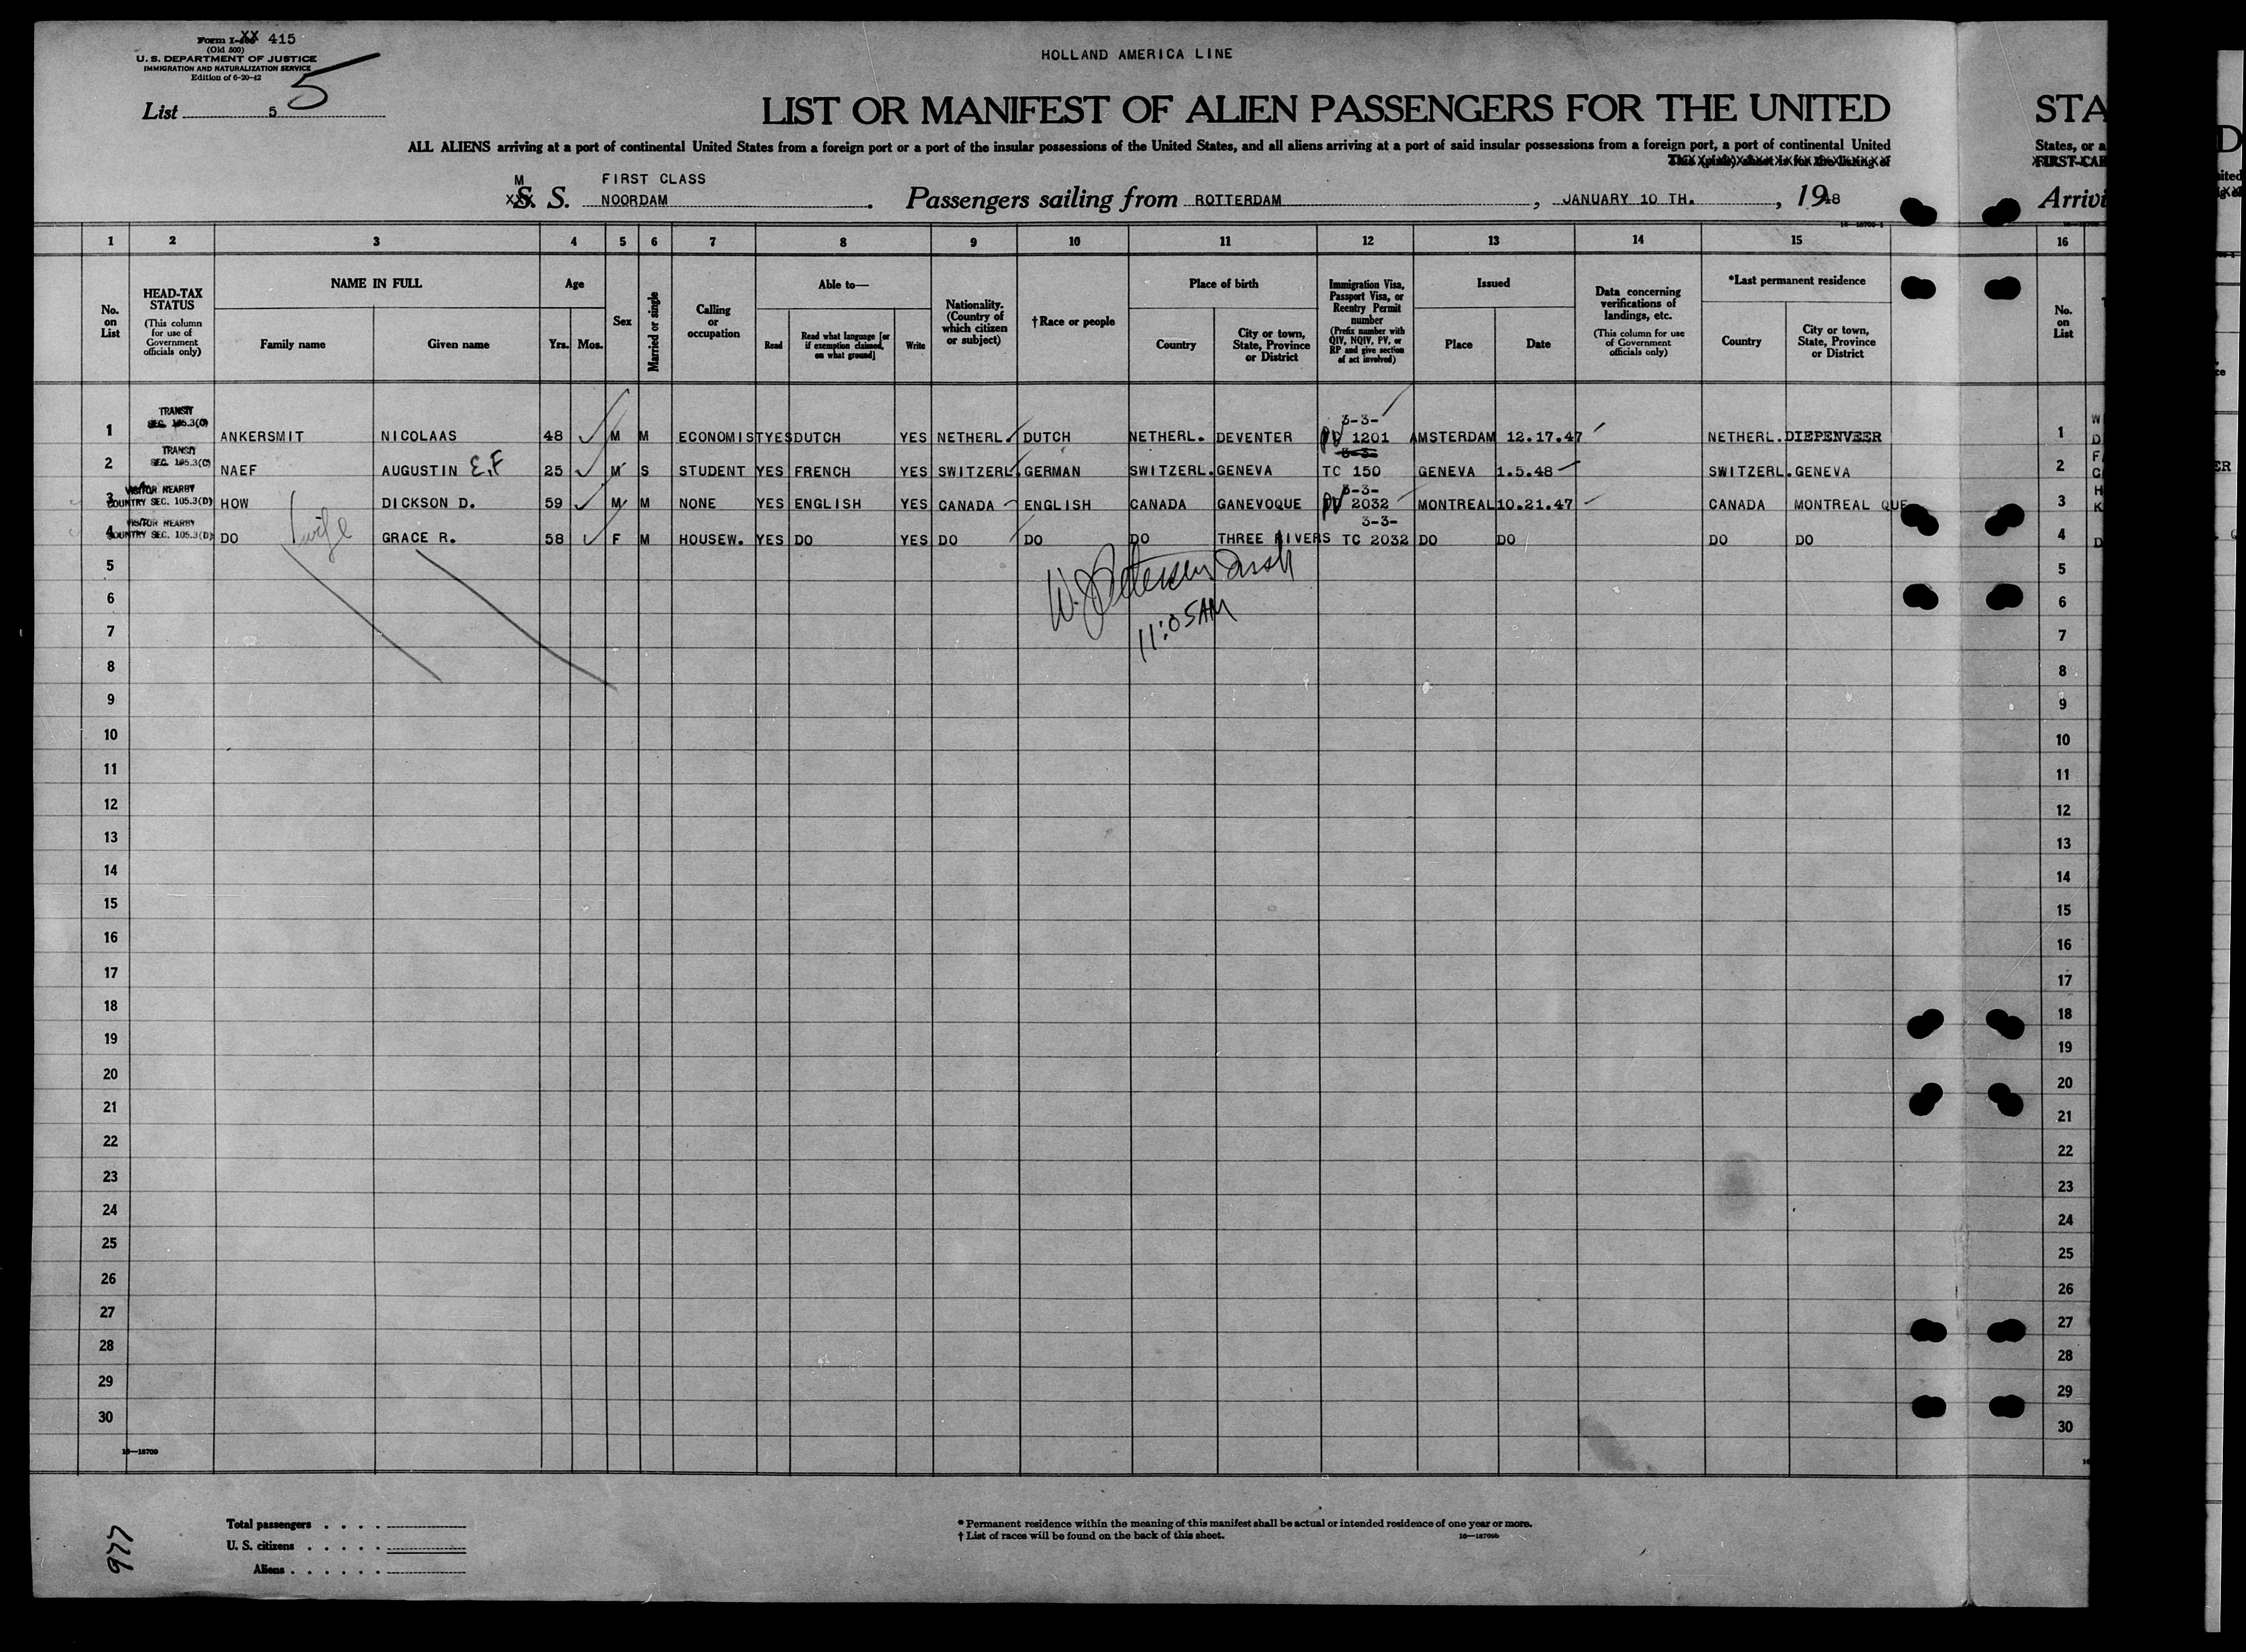 Form I- XX 415
(Old 500)
U. S. DEPARTMENT OF JUSTICE
IMMIGRATION AND NATURALIZATION SERVICE
Edition of 6-20-42
HOLLAND AMERICA LINE
List 5 5
LIST OR MANIFEST OF ALIEN PASSENGERS FOR THE UNITED STA
ALL ALIENS arriving at a port of continental United States from a foreign port or a port of the insular possessions of the United States, and all aliens arriving at a port of said insular possessions from a foreign port, a port of continental United States, or a
This (pink) sheet is for the listing of FIRST-CAB
M FIRST CLASS
S. S. NOORDAM . Passengers sailing from ROTTERDAM , JANUARY 10 TH. , 1948 Arrivi
1 2 3 4 5 6 7 8 9 10 11 12 13 14 15 16
No. on List
HEAD-TAX STATUS (This column for use of Government officials only)
NAME IN FULL Family name Given name
Age Yrs. Mos.
Sex
Married or single
Calling or occupation
Able to— Read Read what language [or if exemption claimed, on what ground] Write
Nationality. (Country of which citizen or subject)
†Race or people
Place of birth Country City or town, State, Province or District
Immigration Visa, Passport Visa, or Reentry Permit number (Prefix number with QIV, NQIV, PV, or RP and give section of act involved)
Issued Place Date
Data concerning verifications of landings, etc. (This column for use of Government officials only)
*Last permanent residence Country City or town, State, Province or District
No. on List
TRANSIT SEC. 105.3(C) 3-3-
1 ANKERSMIT NICOLAAS 48 M M ECONOMIST YES DUTCH YES NETHERL. DUTCH NETHERL. DEVENTER PV 1201 AMSTERDAM 12.17.47 NETHERL. DIEPENVEER 1
TRANSIT SEC. 105.3(C) 3-3-
2 NAEF AUGUSTIN E.F 25 M S STUDENT YES FRENCH YES SWITZERL. GERMAN SWITZERL. GENEVA TC 150 GENEVA 1.5.48 SWITZERL. GENEVA 2
VISITOR NEARBY COUNTRY SEC. 105.3(D) 3-3-
3 HOW DICKSON D. 59 M M NONE YES ENGLISH YES CANADA ENGLISH CANADA GANEVOQUE PV 2032 MONTREAL 10.21.47 CANADA MONTREAL QUE 3
VISITOR NEARBY COUNTRY SEC. 105.3(D) 3-3-
4 DO wife GRACE R. 58 F M HOUSEW. YES DO YES DO DO DO THREE RIVERS TC 2032 DO DO DO DO 4
5 5
6 11:05AM 6
7 7
8 8
9 9
10 10
11 11
12 12
13 13
14 14
15 15
16 16
17 17
18 18
19 19
20 20
21 21
22 22
23 23
24 24
25 25
26 26
27 27
28 28
29 29
30 30
16—18709
977
Total passengers . . . .
U. S. citizens . . . . .
Aliens . . . . . .
* Permanent residence within the meaning of this manifest shall be actual or intended residence of one year or more.
† List of races will be found on the back of this sheet. 16—18709b